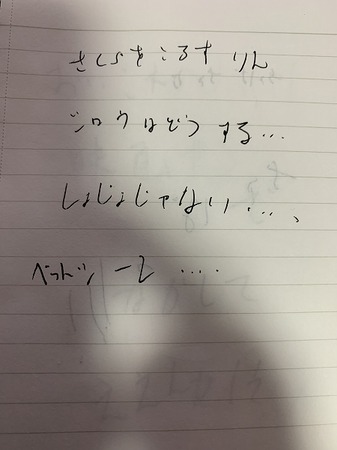 さくらをころす りん
シロウはどうする…
しょじょじゃない…、
ベットシーツ ….